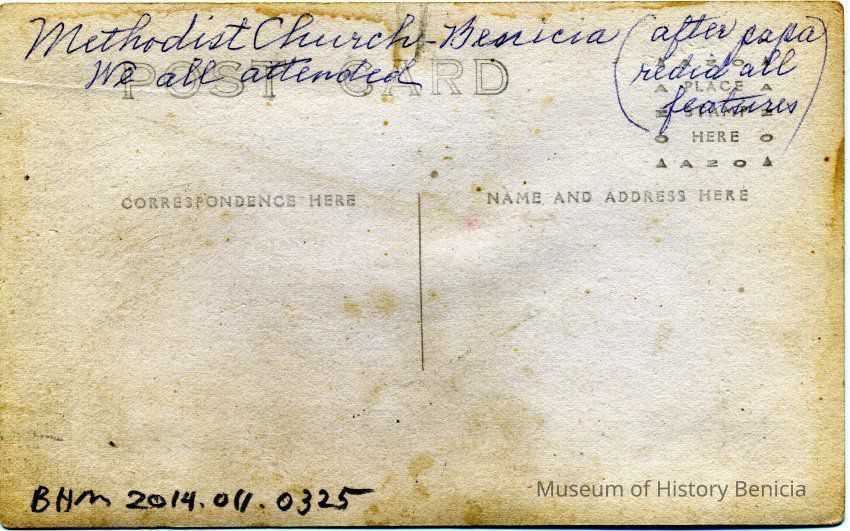 Methodist Church - Benicia (after papa
We all attended redid all
features)
POST CARD
AZO
PLACE
STAMP
HERE
AZO
CORRESPONDENCE HERE
NAME AND ADDRESS HERE
BHM 2014.011.0325
Museum of History Benicia